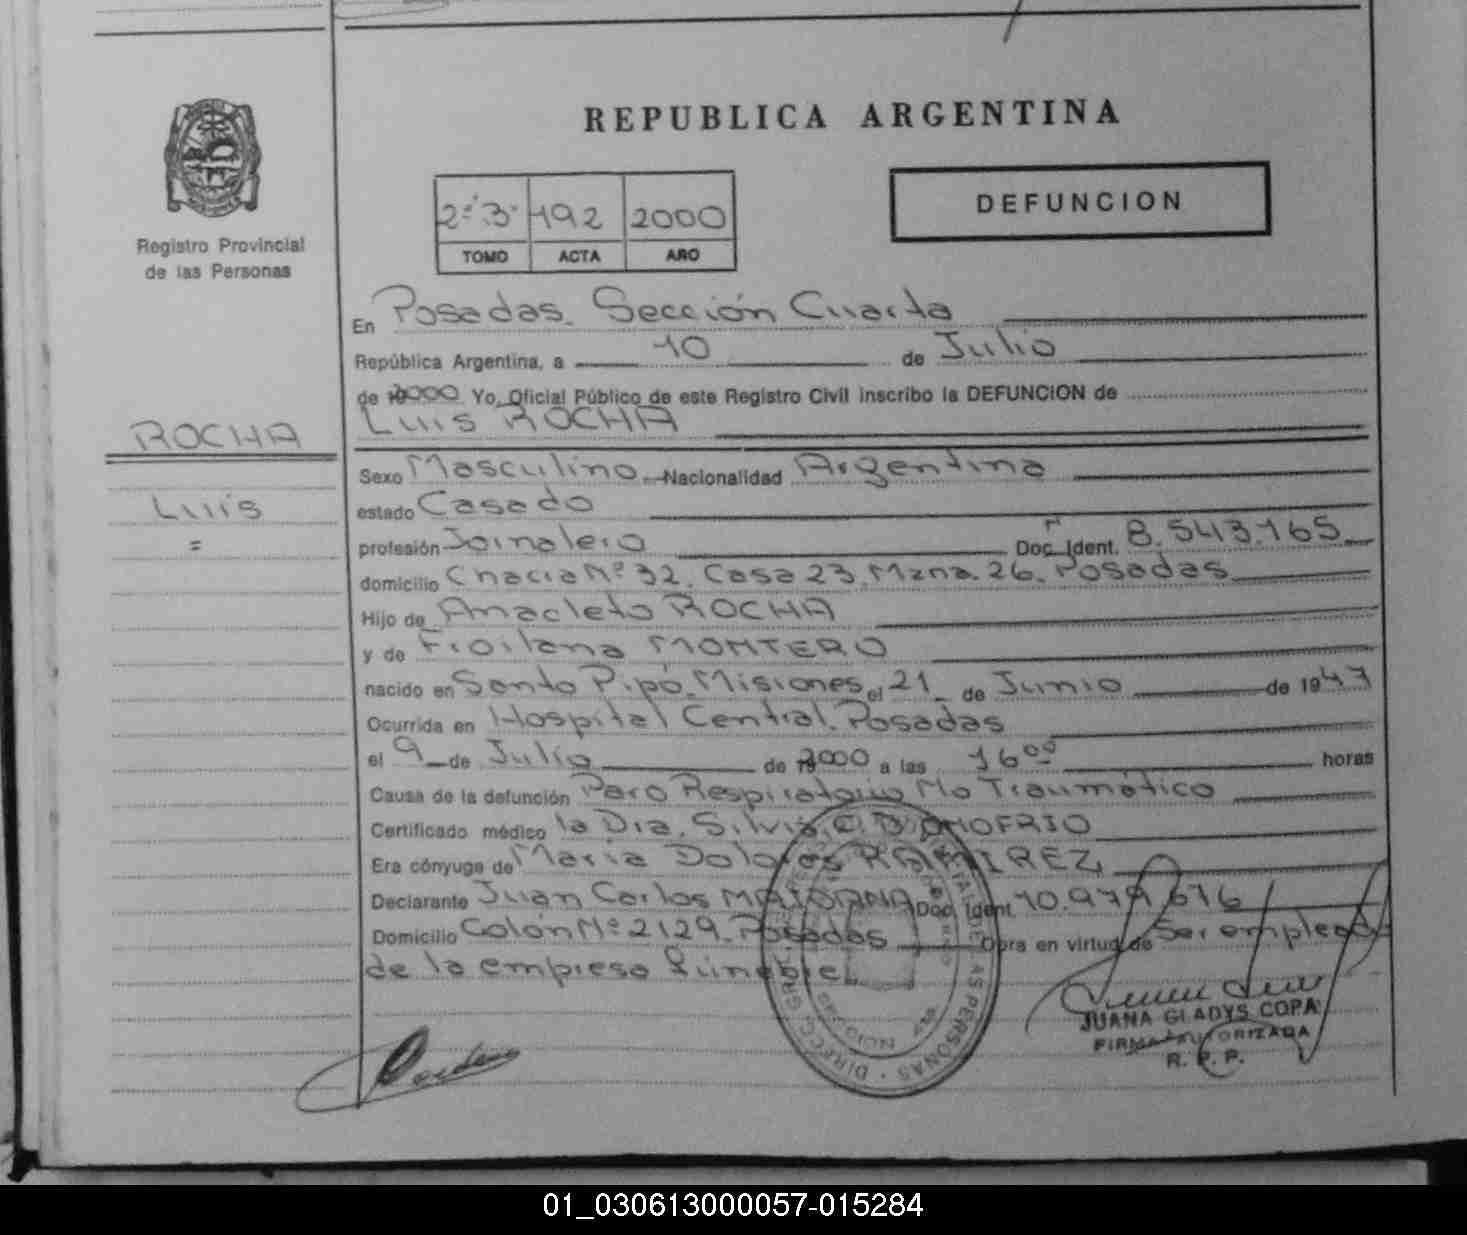 REPUBLICA ARGENTINA
2º 3º 192 2000
TOMO ACTA AÑO
DEFUNCION
Registro Provincial
de las Personas
En Posadas. Sección Cuarta
República Argentina, a 10 de Julio
de 2000 Yo, Oficial Público de este Registro Civil inscribo la DEFUNCION de
Luis ROCHA
ROCHA
Luis
=
Sexo Masculino Nacionalidad Argentina
estado Casado
profesión Jornalero Doc. Ident. 8.543.165
domicilio Chacra Nº 32. Casa 23. Mzna. 26. Posadas
Hijo de Anacleto ROCHA
y de Froilana MONTERO
nacido en Santo Pipó. Misiones el 21 de Junio de 1947
Ocurrida en Hospital Central. Posadas
el 9 de Julio de 2000 a las 16ºº horas
Causa de la defunción Paro Respiratorio No Traumático
Certificado médico la Dra. Silvia C. D'ONOFRIO
Era cónyuge de María Dolores RAMIREZ
Declarante Juan Carlos MAIDANA Doc. Ident. 10.979.616
Domicilio Colón Nº 2129. Posadas Obra en virtud de Ser empleado
de la empresa fúnebre
JUANA GLADYS COPA
FIRMA AUTORIZADA
R. P. P.
DE LAS PERSONAS
01_030613000057-015284